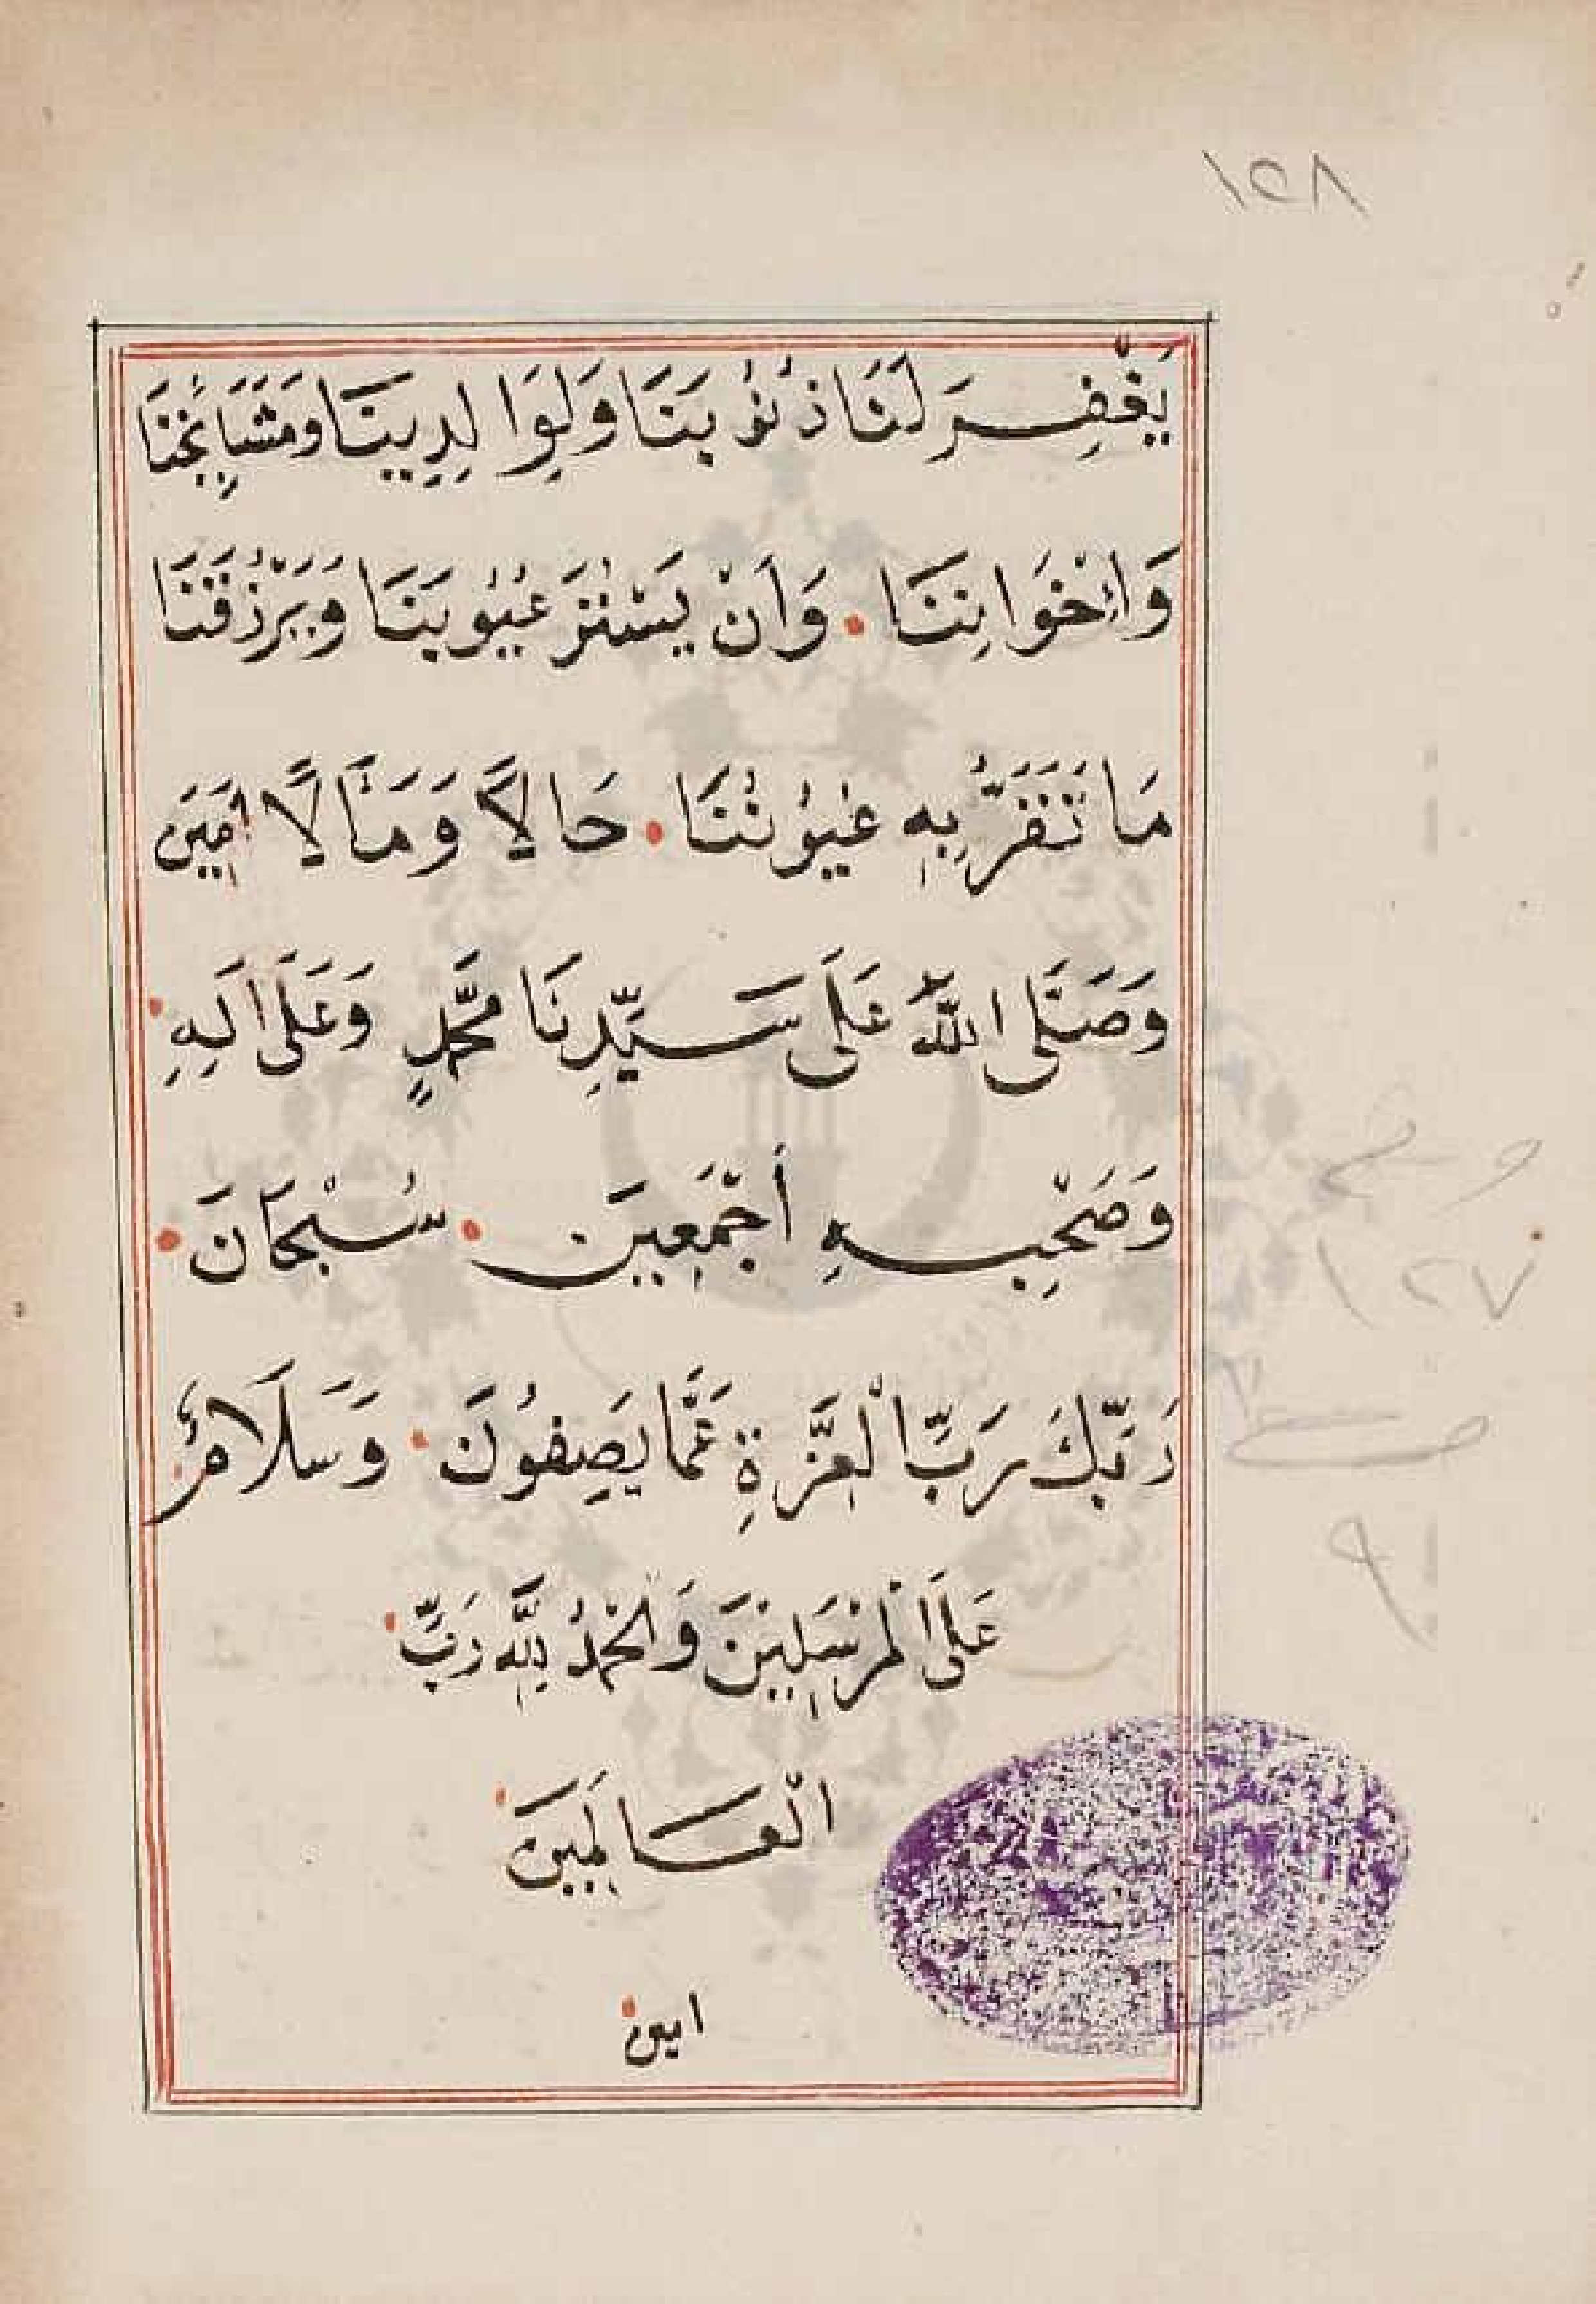 ١٥٨
يَغْفِرَ لَنَا ذُنُوبَنَا وَلِوَالِدِينَا وَمَشَايِخَنَا
وَاِخْوَانِنَا . وَاَنْ يَسْتُرَ عُيُوبَنَا وَيَرْزُقَنَا
مَا تَقَرُّ بِهِ عُيُونُنَا . حَالاً وَمَأٰلاً اٰمِينَ
وَصَلَّى اللّٰهُ عَلَى سَيِّدِنَا مُحَمَّدٍ وَعَلَى اٰلِهِ .
وَصَحْبِهِ أَجْمَعِينَ . سُبْحَانَ .
رَبِّكَ رَبِّ الْعِزَّةِ عَمَّا يَصِفُونَ . وَسَلَامٌ
عَلَى الْمُرْسَلِينَ وَالْحَمْدُ لِلّٰهِ رَبِّ .
الْعَالَمِينَ .
امين .